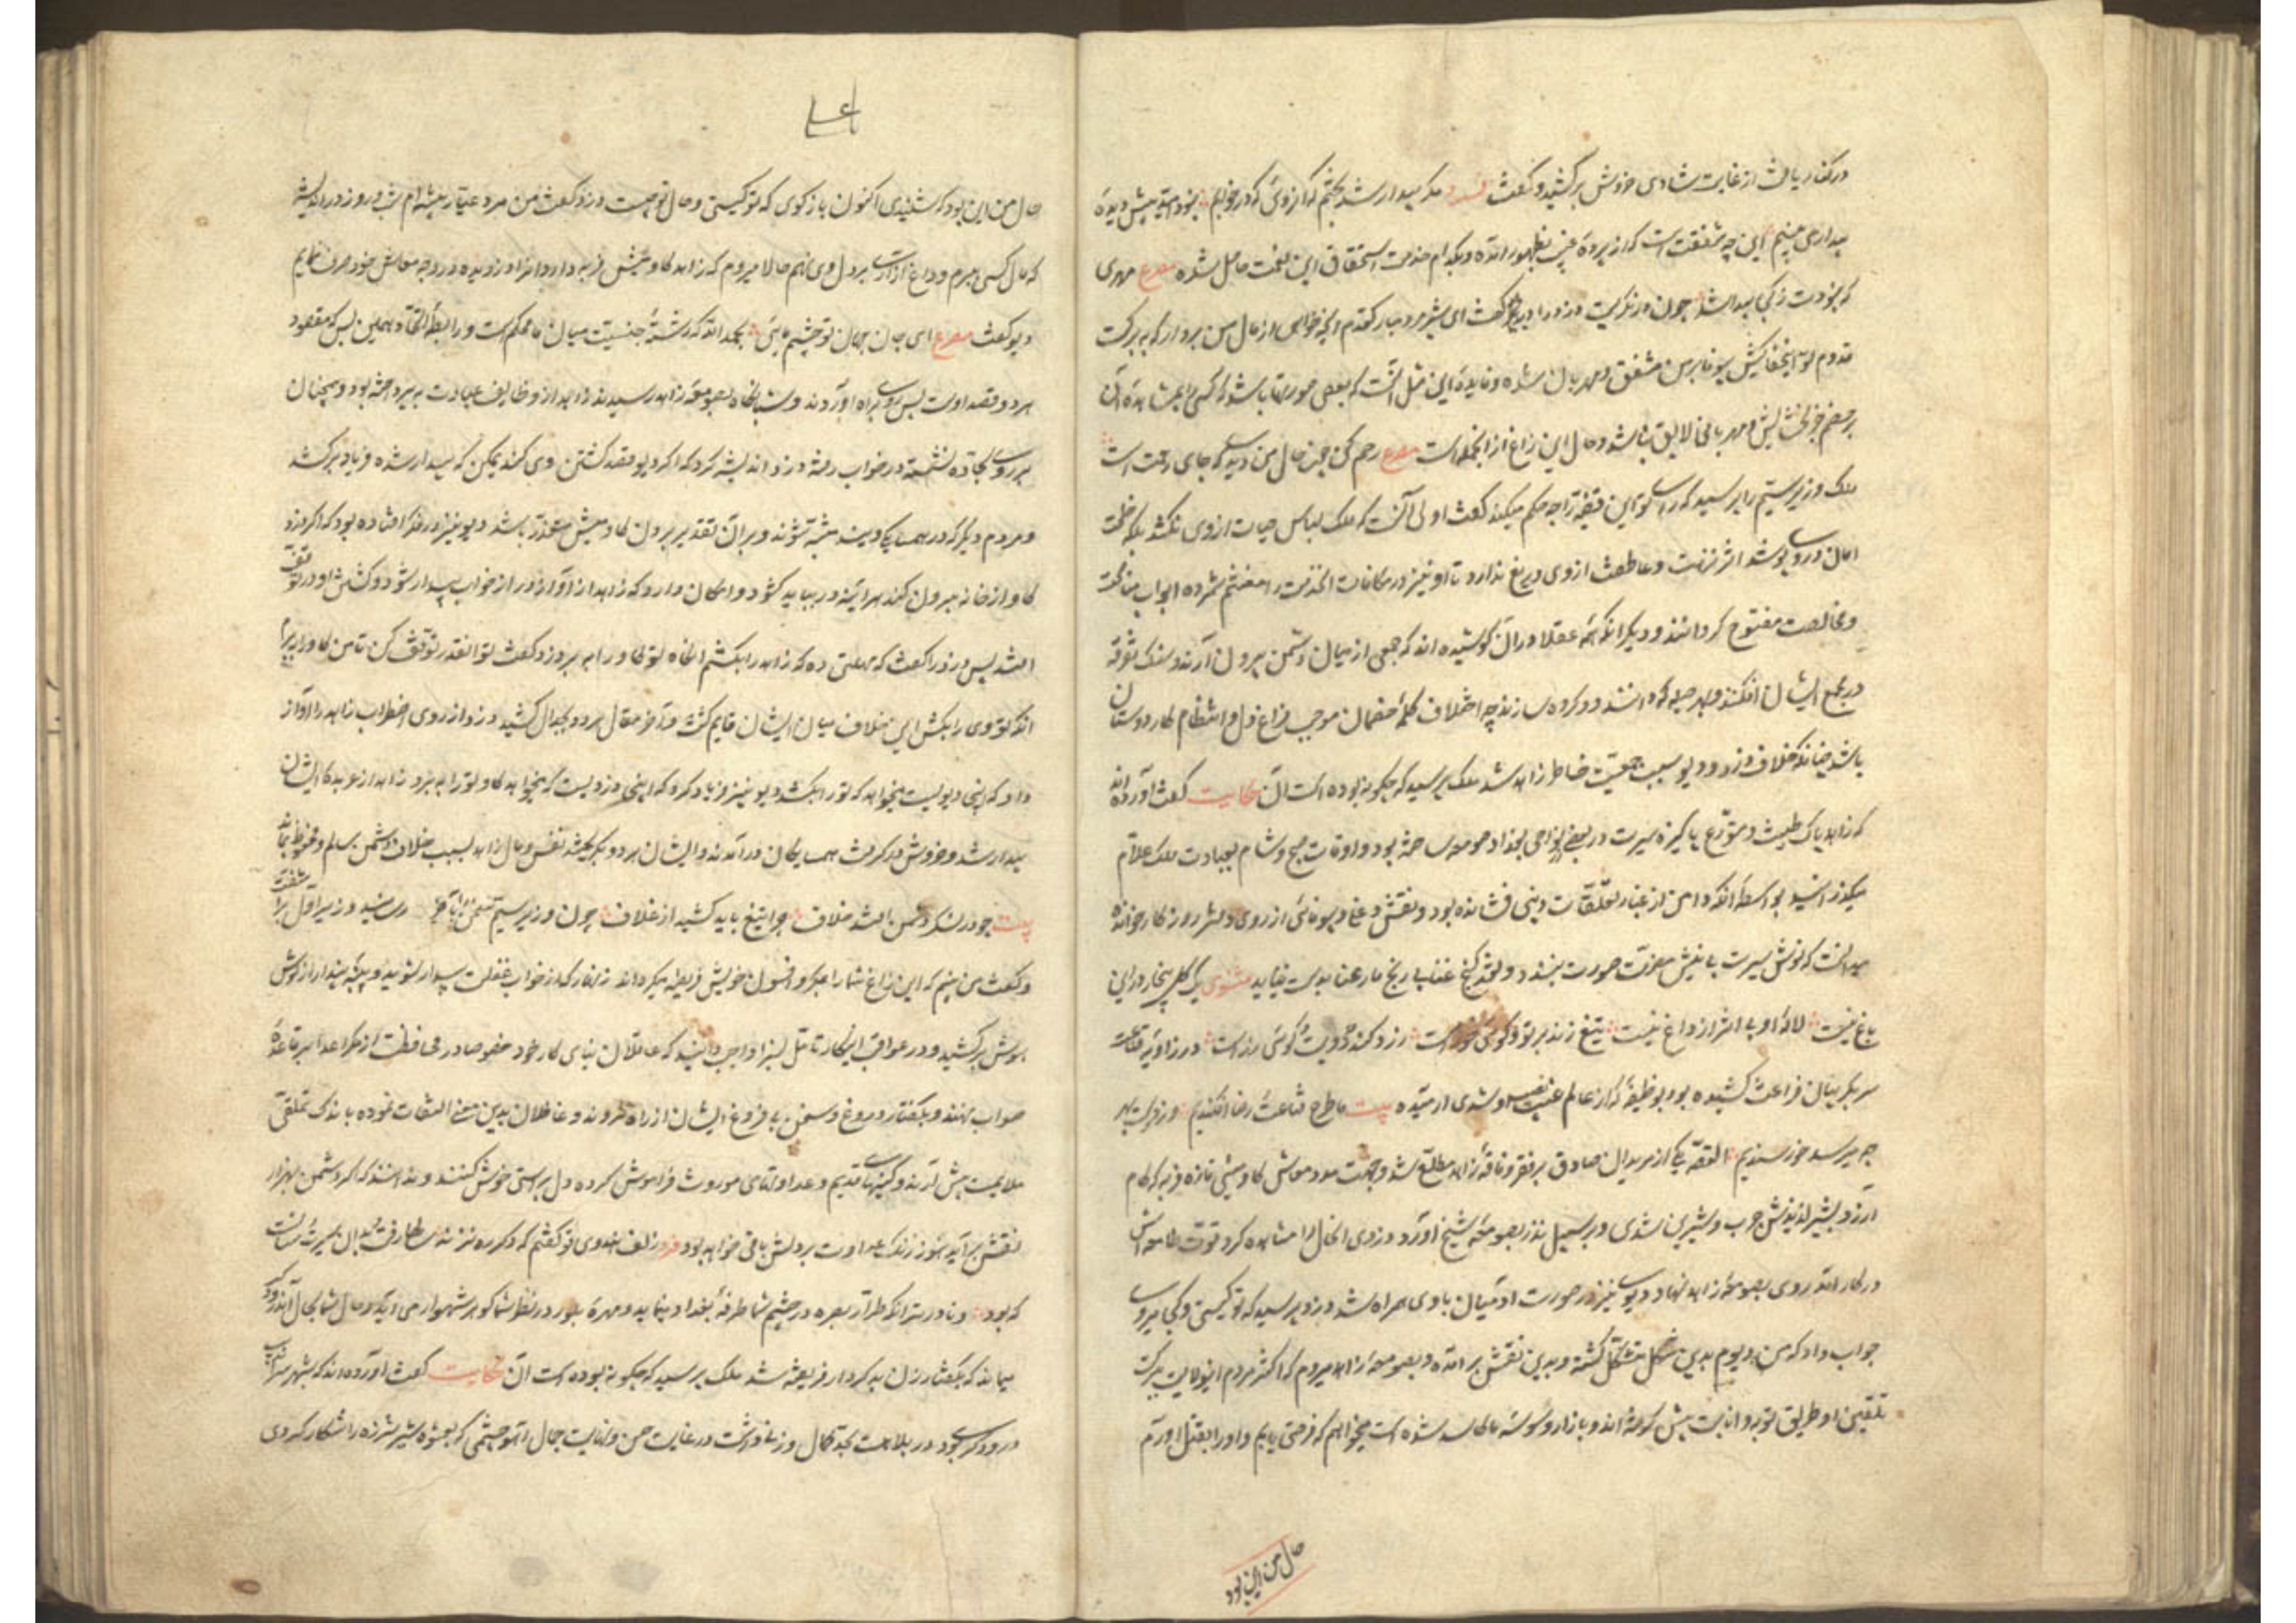 در کنار یافت از غایت شادی خروش برکشید و گفت فرد مگر بیدار شد بختم که از روئی که در خوابم بخود امید پیش دیده
بیداری می بینم این چه شفقت است که از پرده غیب بظهور آمده و بکدام خدمت استحقاق این نعمت حاصل شده مصرع مهری
که نبودت ز کجا پیدا شد چون در نگریست دزد را دید گفت ای شیر مرد مبارک قدم آنچه خواهی از مال من بردار که به برکت
قدوم تو این جفاکیش بیوفا بر من مشفق و مهربان شده و فایده این مثل آنست که بعضی صورتها باشد که کسی را بمشاهده آن
بر خصم خود بخشایش و مهربانی لایق باشد و حال این زاغ از آنجمله است مصرع رحم کن چون حال من دیدی که جای رحمت است
ملک وزیر سیم را پرسید که رای تو این قضیه را چه حکم میکند گفت اولی آنست که ملک لباس حیات از وی نکشد بلکه خلعت
امان در وی پوشد اثر تربیت و عاطفت از وی دریغ ندارد تا او نیز در مکافات آن خدمت را مغتنم شمرده ابواب مناصحت
و مخالصت مفتوح گرداند و دیگر آنکه همه عقلا در آن کوشیده اند که جمعی از میان دشمن بیرون آرند و سنک تفرقه
در مجمع ایشان افکنند و بهر حیله که دانند دو گروه سازند چه اختلاف کلمه خصمان موجب فراغ دل و انتظام کار دوستان
باشد چنانکه خلاف دزد و دیو سبب جمعیت خاطر زاهد شد ملک پرسید که چگونه بوده است آن حکایت گفت آورده اند
که زاهد پاک طینت و متورع پاکیزه سیرت در بعضی نواحی بغداد صومعه ساخته بود و اوقات صبح و شام بعبادت ملک علام
میگذرانید بواسطه آنکه دامن از غبار تعلقات دنیی فشانده بود و نقش دغا و بیوفائی از روی دفتر روزگار خوانده
میدانست که نوش مسرت بی نیش مضرت صورت نبندد و نقد گنج غنا بی رنج مار عنا بدست نیاید مثنوی یک گل بیخار در این
باغ نیست لاله او بی اثر از داغ نیست تیغ زند بر تو و گوئی خور است زرد کند رویت و گوئی زر است در زاویه قناعت
سر بگریبان فراغت کشیده بود بوظیفه که از عالم غیب نصیب او شدی آرمیده بیت ما طرح قناعت رضا افکندیم ور زو بهر
چه میرسد خورسندیم القصه یکی از مریدان صادق بر فقر و فاقه زاهد مطلع شد و جهت مدد معاش گاومیشی تازه و فربه که کام
آرزو بشیر لذیذش چرب و شیرین شدی بر سبیل نذر بصومعه شیخ آورد دزدی آن حال را مشاهده کرد قوت طامعه اش
در کار آمد روی بصومعه زاهد نهاد و دیوی نیز در صورت آدمیان با وی همراه شد دزد پرسید که تو کیستی و کجا میروی
جواب داد که من دیوم بدین شکل متشکل گشته و بدین نقش بر آمده و بصومعه زاهد میروم که اکثر مردم اینولایت ببرکت
تلقین او طریق توبه و انابت پیش گرفته اند و بازار وسوسه ما کاسد شده است میخواهم که فرصتی یابم و او را بقتل آورم
حال من این بود
۱۶۱
حال من این بود که شنیدی اکنون بازگوی که تو کیستی و حال تو چیست دزد گفت من مرد عیار پیشه ام شب و روز در اندیشه
که مال کسی ببرم و داغ آزار بر دل وی نهم حالا میروم که زاهد گاومیش فربه دارد آنرا دزدیده در وجه معاش خود صرف نمایم
دیو گفت مصرع ای جان جهان تو خویش مائی بحمد الله که رشته جنسیت میان ما محکم است و رابطه اتحاد همین بس که مقصود
هر دو قصد اوست پس روی براه آوردند و شبانگاه بصومعه زاهد رسیدند زاهد از وظایف عبادت بپرداخته بود و همچنان
بر روی سجاده نشسته در خواب رفته دزد اندیشه کرد که اگر دیو قصد کشتن وی کند یمکن که بیدار شده فریاد برکشد
و مردم دیگر که در همسایگی ویند متنبه شوند و بر آن تقدیر بردن گاومیش متعذر باشد دیو نیز در فکر افتاده بود که اگر دزد
گاو از خانه بیرون کند هر آینه در بباید گشود و امکان دارد که زاهد از آواز در از خواب بیدار شود و کشتن او در توقف
افتد پس دزد را گفت که مهلتی ده که زاهد را بکشم آنگاه تو گاو را ببر دزد گفت تو آنقدر توقف کن تا من گاو را ببرم
آنگه تو وی را بکش این خلاف میان ایشان قایم گشت و آخر مقال هر دو بجدال کشید دزد از روی اضطراب زاهد را آواز
داد که اینجا دیویست میخواهد که تو را بکشد دیو نیز فریاد کرد که اینجا دزدیست که میخواهد گاو تو را ببرد زاهد از عربده ایشان
بیدار شد و خروش در گرفت همسایگان در آمدند و ایشان هر دو بگریختند نفس و مال زاهد بسبب خلاف دشمن سالم و محفوظ بماند
بیت چو در لشکر دشمن افتد خلاف چرا تیغ باید کشید از غلاف چون وزیر سیم سخن بآخر رسانید وزیر اول بر آشفت
و گفت من می بینم که این زاغ شما را بمکر و افسون خویش فریفته میگرداند زنهار که از خواب غفلت بیدار شوید و پنبه پندار از گوش
هوش برکشید و در عواقب اینکار تامل بسزا واجب دانید که عاقلان بنای کار خود خصوصا در محافظت از مکر اعدا بر قاعده
صواب نهند و بگفتار دروغ و سخن بی فروغ ایشان از راه نروند و غافلان بدین معنی التفات نموده باندک تملقی
ملایمت پیش آرند و کینهای قدیم و عداوتهای موروث فراموش کرده دل بر آشتی خوش کنند و ندانند که اگر دشمن بهزار
نقش بر آید هنوز زنک عداوت بر دلش باقی خواهد بود فرد زلف هندوی تو گفتم که دگر ره نزند سالها رفت و بدان سیرت و سانست
که بود و نادرتر آنکه طرار بصره در چشم شما طرفه بغداد مینماید و مهره بلور در نظر شما گوهر شهوار می آید و حال شما بحال آن درودگر
میماند که بگفتار زن بدکردار فریفته شد ملک پرسید که چگونه بوده است آن حکایت گفت آورده اند که بشهر سراندیب
درودگری بود در بلاهت بحد کمال و زنی داشت در غایت حسن و نهایت جمال آهو چشمی که بعشوه شیر شرزه را شکار کردی